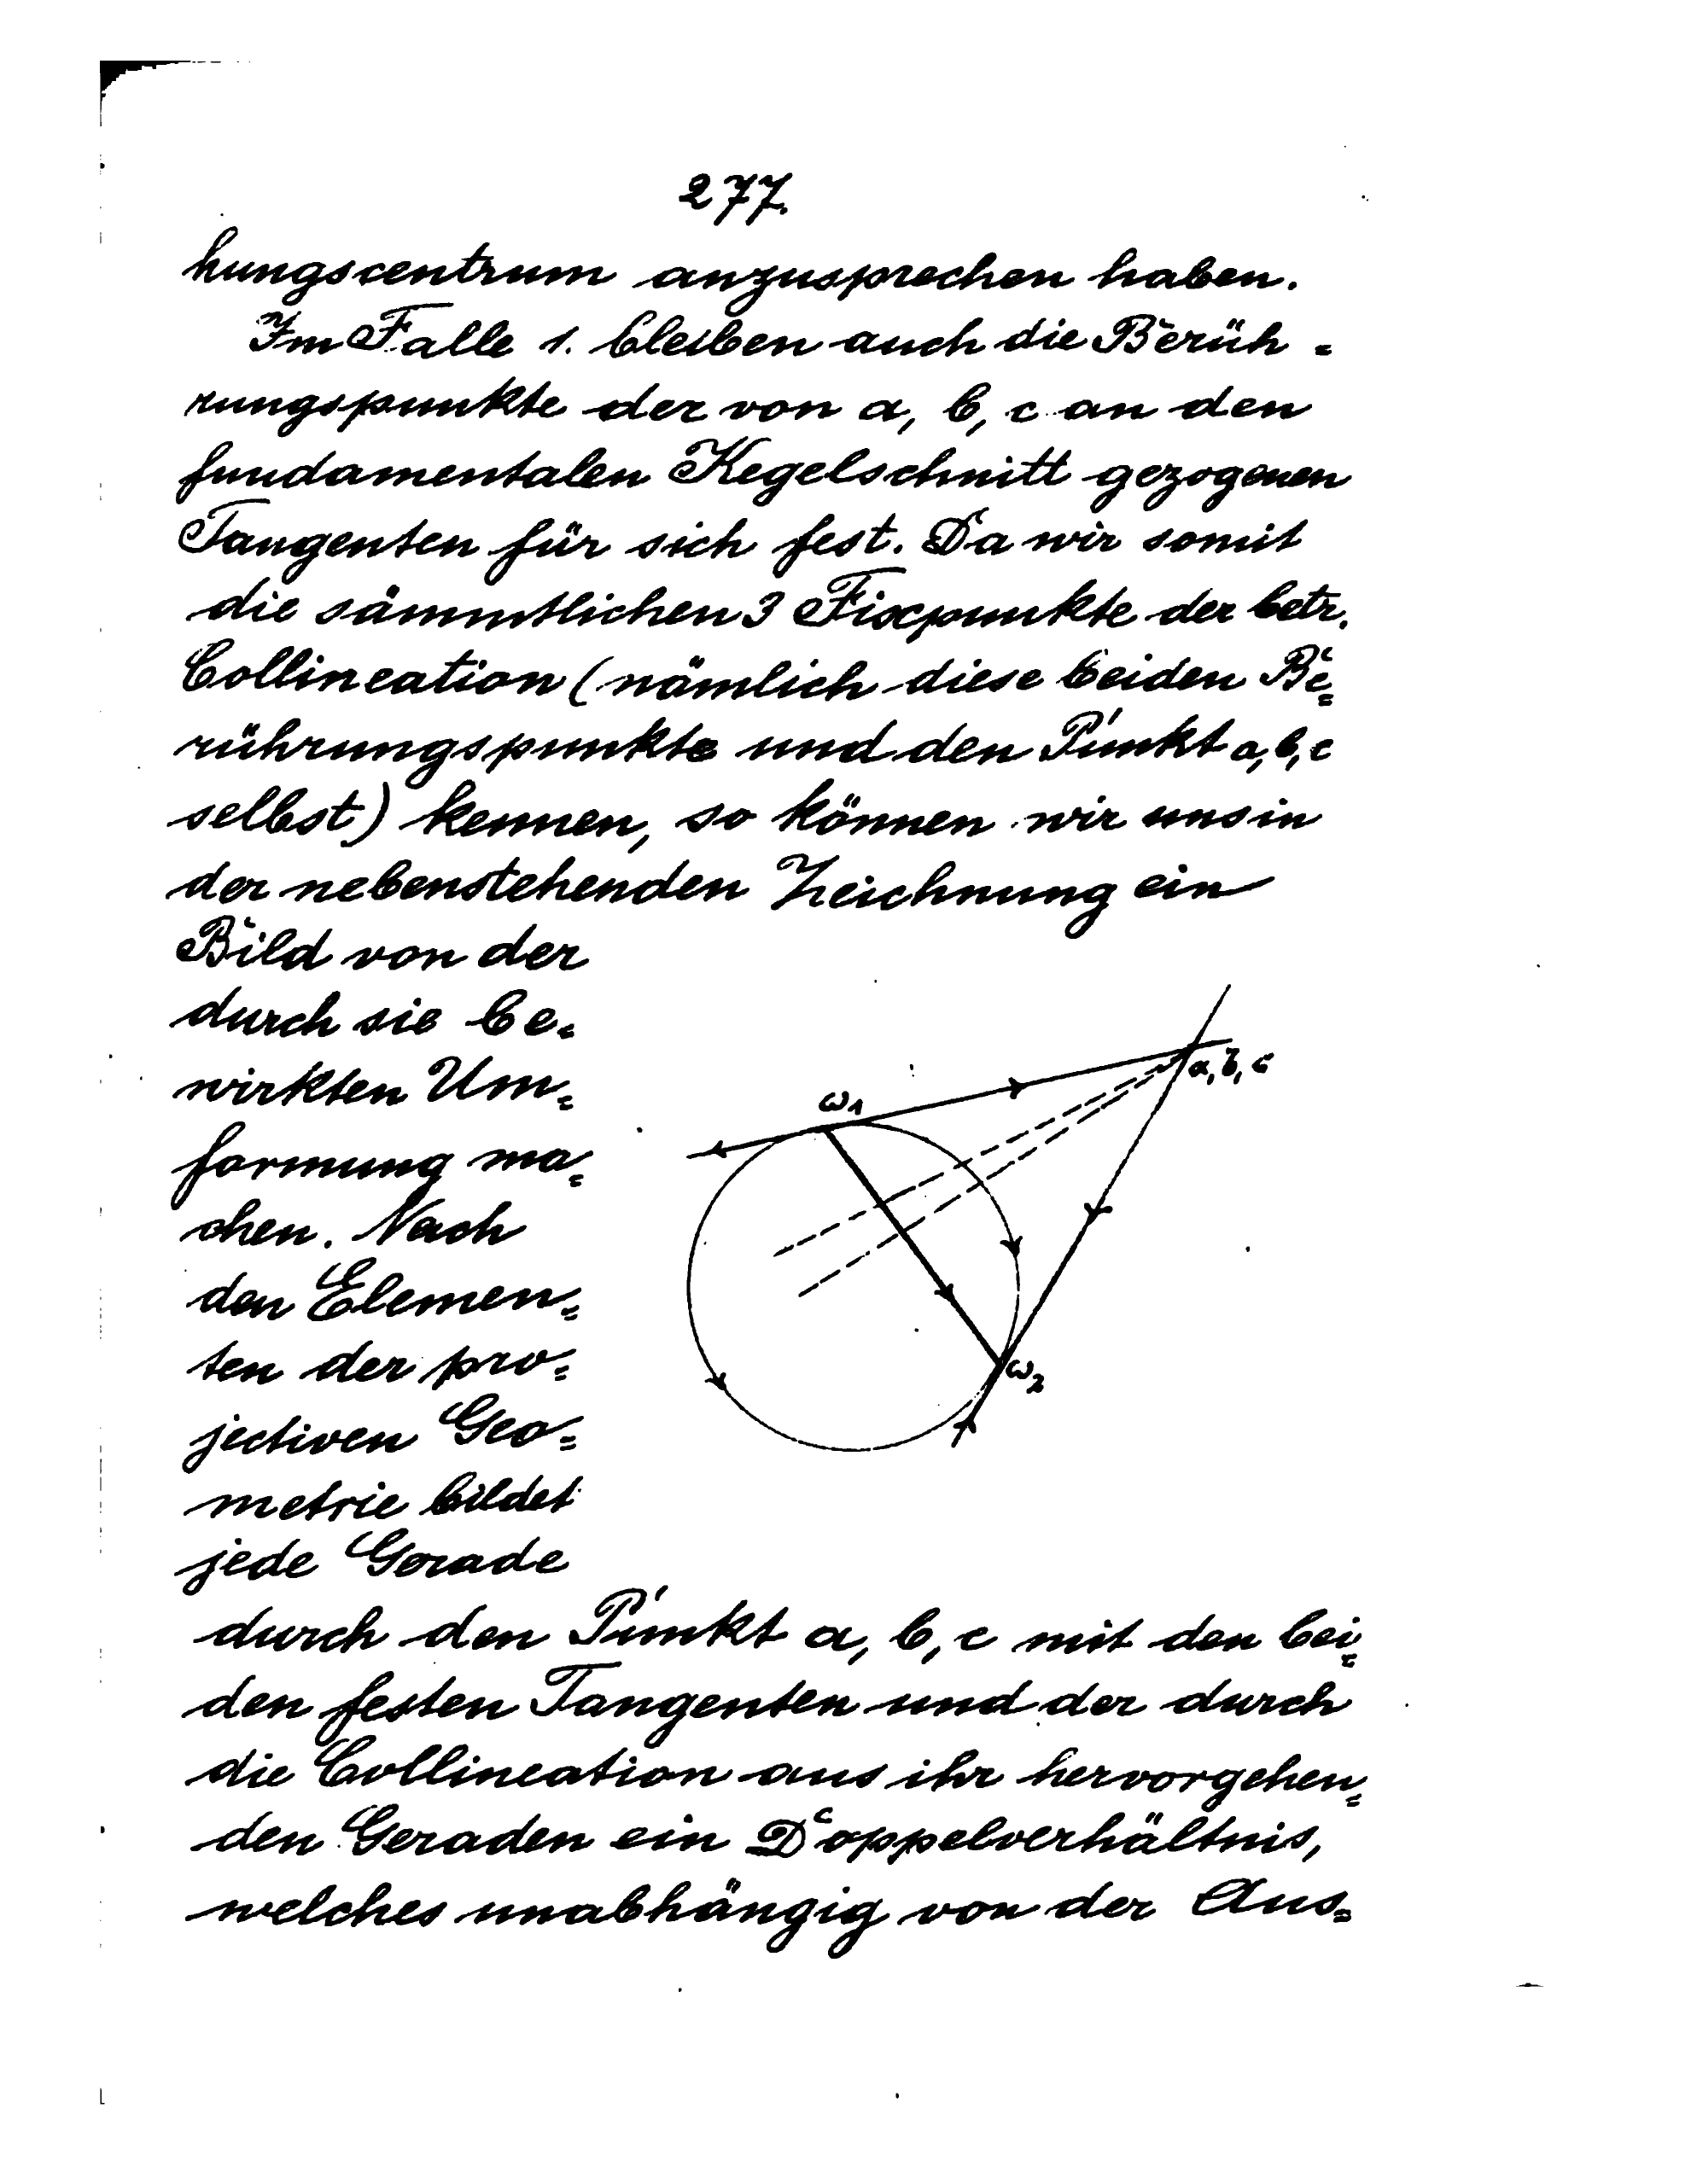 277.
hungscentrum anzusprechen haben.
Im Falle 1. bleiben auch die Berüh=
rungspunkte der von a, b, c an den
fundamentalen Kegelschnitt gezogenen
Tangenten für sich fest. Da wir somit
die sämmtlichen 3 Fixpunkte der betr.
Collineation (nämlich diese beiden Be=
rührungspunkte und den Punkt a, b, c
selbst) kennen, so können wir uns in
der nebenstehenden Zeichnung ein
Bild von der
durch sie be=
wirkten Um=
formung ma=
chen. Nach
den Elemen=
ten der pro=
jectiven Geo=
metrie bildet
jede Gerade
a, b, c
ω1
ω2
durch den Punkt a, b, c mit den bei=
den festen Tangenten und der durch
die Collineation aus ihr hervorgehen=
den Geraden ein Doppelverhältnis,
welches unabhängig von der Aus=